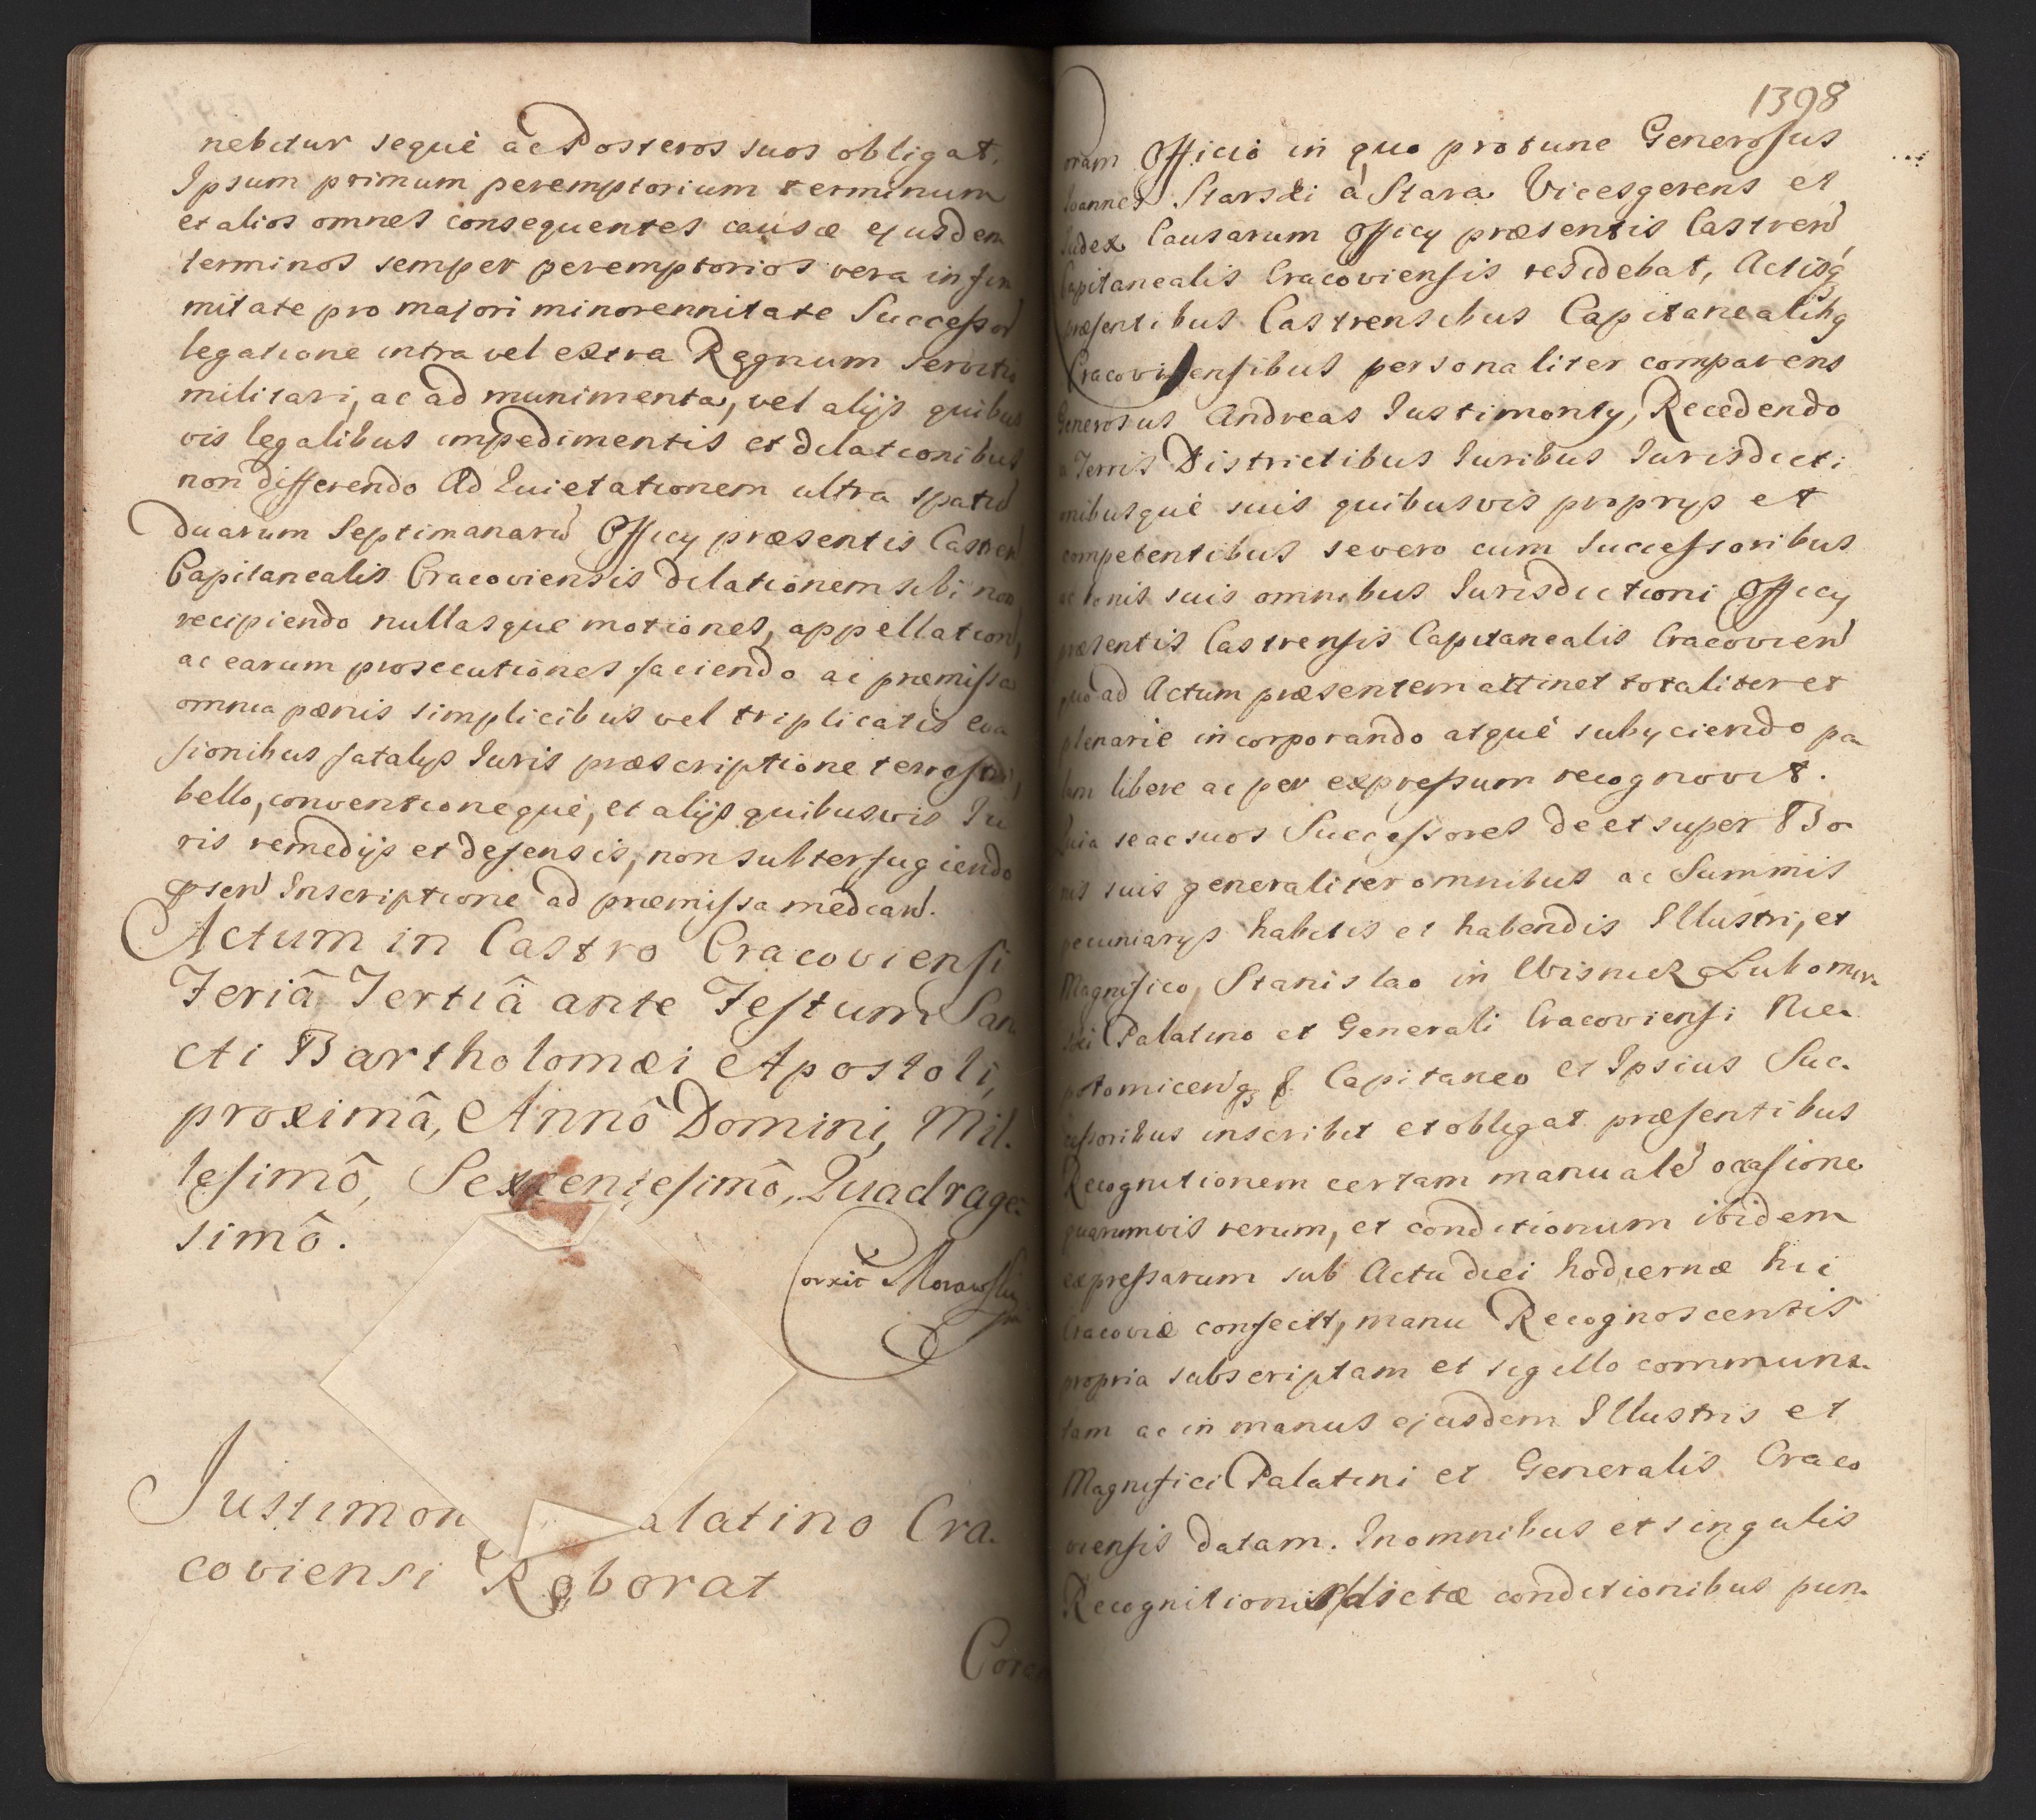 nebitur seque ac Posteros suos obligat.
Ipsum primum peremptorium terminum
et alios omnes consequentes causæ ejusdem
terminos semper peremptorios vera infir
mitate pro majori minorennitate Successor
legatione intra vel extra Regnum servitio
militari, ac ad munimenta, vel alijs quibus
vis legalibus impedimentis et dilationibus
non differendo Ad Quietationem ultra spatiu
duarum Septimanaru Officy præsentis Castren
Capitanealis Cracoviensis dilationem sibi non
recipiendo nullasque motiones, appellation,
ac earum prosecutiones faciendo ac præmissa
omnia pænis simplicibus vel triplicatis eva
sionibus fatalys Iuris præscriptione terrestri,
bello, conventioneque, et alijs quibusvis Iu
ris remedijs et defensis, non subterfugiendo
psen Inscriptione ad præmissa median.
Actum in Castro Cracoviensi
Feriâ Tertiâ ante Festum San
cti Bartholomæi Apostoli,
proximâ, Annô Domini, Mil.
lesimô, Sexcentesimô, Quadrage.
simô.
Corxit Morawski
Justimon alatino Cra.
coviensi Roborat
Coram
1398
oram Officiô in quo protunc Generosus
Ioannes Starski à Stara Vicesgerens et
Iudex Causarum Officy præsentis Castren
Capitanealis Cracoviensis residebat, Actisq
præsentibus Castrensibus Capitanealibq
Cracoviensibus personaliter comparens
Generosus Andreas Iustimonty, Recedendo
a Terris Districtibus Iuribus Iurisdicti
onibusque suis quibusvis proprys et
competentibus severo cum Successoribus
ac bonis suis omnibus Iurisdictioni Officy
præsentis Castrensis Capitanealis Cracovien
quo ad Actum præsentem attinet totaliter et
plenarie incorporando atque subyciendo pa
lam libere ac per expressum recognovit.
Quia se ac suos Successores de et super Bo
nis suis generaliter omnibus ac Summis
pecuniarys habitis et habendis Illustri, et
Magnifico Stanislao in Wisnicz Lubomir.
ski Palatino et Generali Cracoviensi Nie.
potomicenq & Capitaneo et Ipsius Suc.
cessoribus inscribit et obligat præsentibus
Recognitionem certam manuale occasione
quarumvis rerum, et conditionum ibidem
expressarum sub Actu diei hodiernæ hic
Cracoviæ confectt, manu Recognoscentis
propria subscriptam et sigillo communi.
tam ac in manus ejusdem Illustris et
Magnifici Palatini et Generalis Craco
viensis datam. In omnibus et singulis
Recognitionis dictæ conditionibus pun.